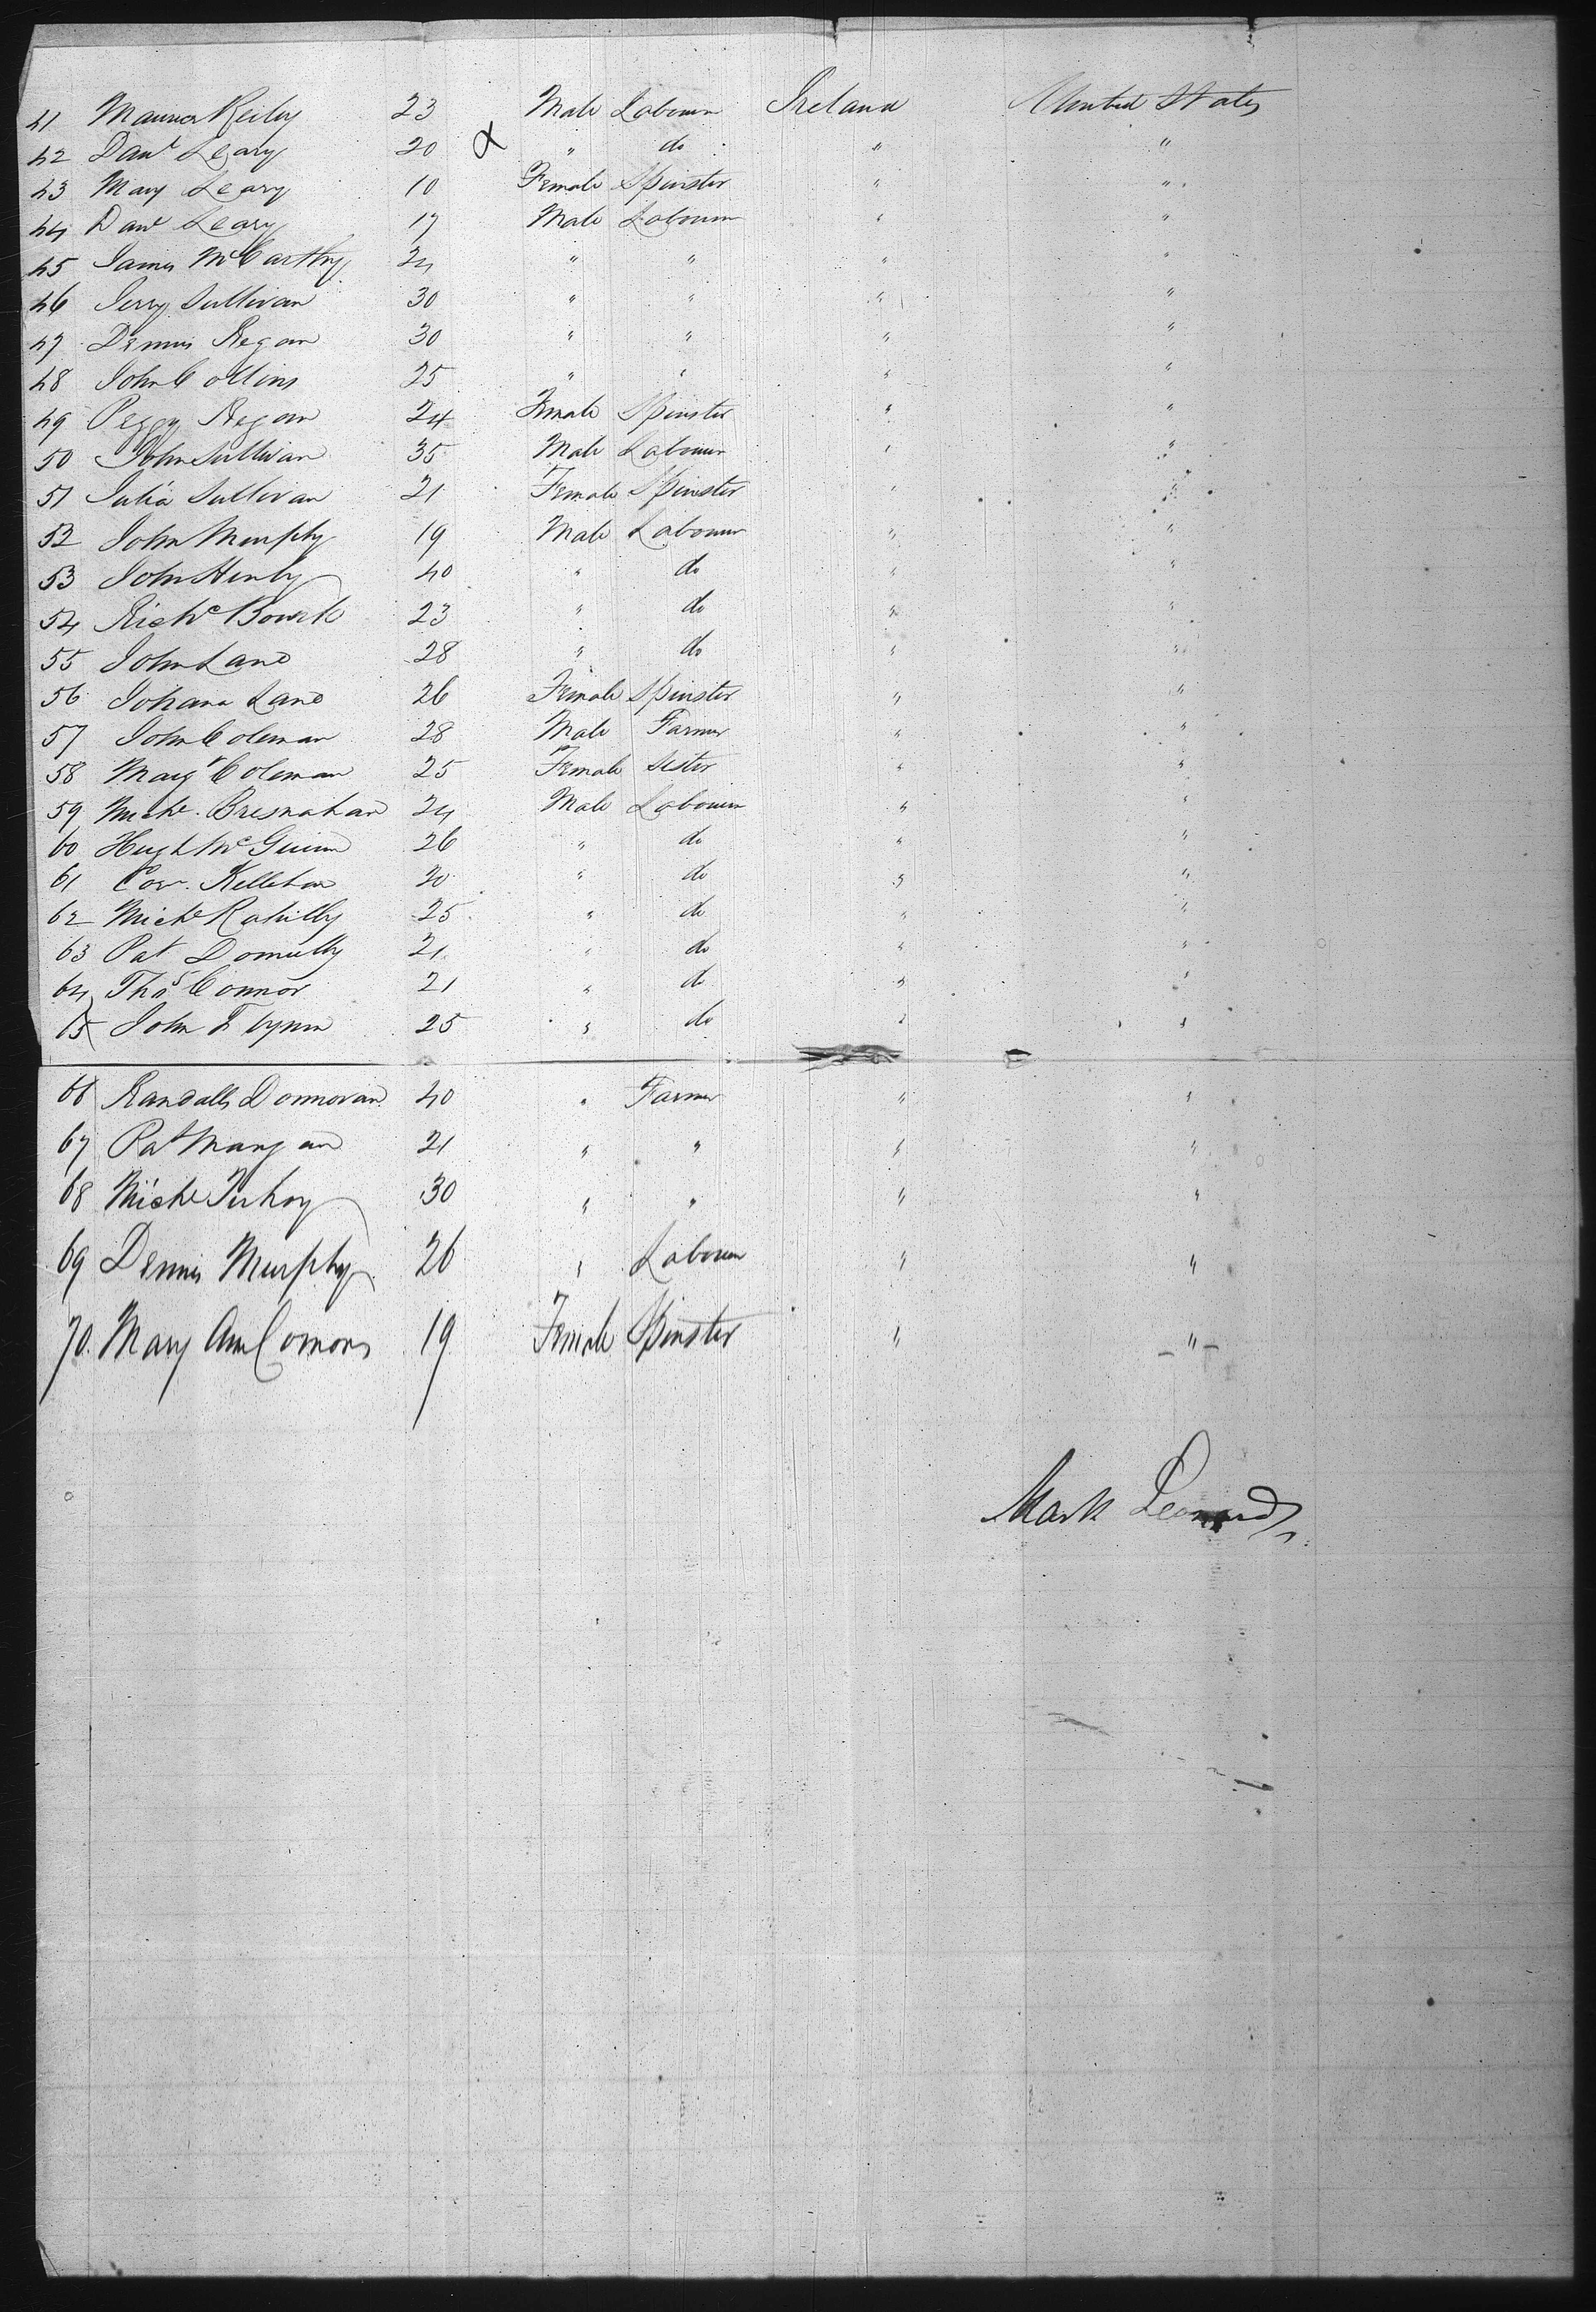 41 Maurice Reiley 23 Male Labourer Ireland United States
42 Danl Leary 20 " do " "
43 Mary Leary 10 Female Spinster " "
44 Danl Leary 17 Male Labourer " "
45 James McCarthy 24 " " " "
46 Jerry Sullivan 30 " " " "
47 Dennis Regan 30 " " " "
48 John Collins 25 " " " "
49 Peggy Regan 24 Female Spinster " "
50 John Sullivan 35 Male Labourer " "
51 Julia Sullivan 21 Female Spinster " "
52 John Murphy 19 Male Labourer " "
53 John Henly 40 " do " "
54 Richd Bourk 23 " do " "
55 John Lane 28 " do " "
56 Johana Lane 26 Female Spinster " "
57 John Coleman 28 Male Farmer " "
58 Margt Coleman 25 Female Sister " "
59 Michl Bresnahan 24 Male Labourer " "
60 Hugh McGuinn 26 " do " "
61 Cor. Kellehan 20 " do " "
62 Michl Rahilly 25 " do " "
63 Pat Donnelly 21 " do " "
64 Thos Connor 21 " do " "
65 John Flynn 25 " do " "
66 Randalls Donnovan 40 " Farmer " "
67 Pat Mangan 21 " " " "
68 Michl 30 " " " "
69 Dennis Murphy 26 " Labourer " "
70. Mary Ann Connors 19 Female Spinster " - " -
Mark Leonard